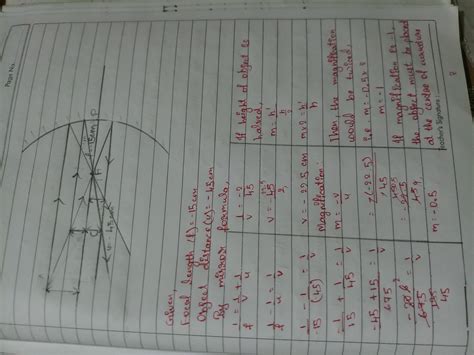 Page No.
15cm P
45cm
Given,
Focal length (f) = -15 cm
Object distance (u) = -45cm
By mirror formula,
1/f = 1/v + 1/u
1/f - 1/u = 1/v
1/-15 - 1/(45) = 1/v
-1/15 + 1/45 = 1/v
-45+15/675 = 1/v
1/v = -2/45
v = -45/2
v = -22.5 cm
Magnification:
m = -v/u
= -(-22.5)/-45
m = -0.5
If height of object is
halved,
m = h'/h
m×2 = h'/h
Then, the magnification
would be twiced,
i.e m = -0.5×2
m = -1
If magnification is -1,
the object must be placed
at the centre of curvature
Teacher's Signature: